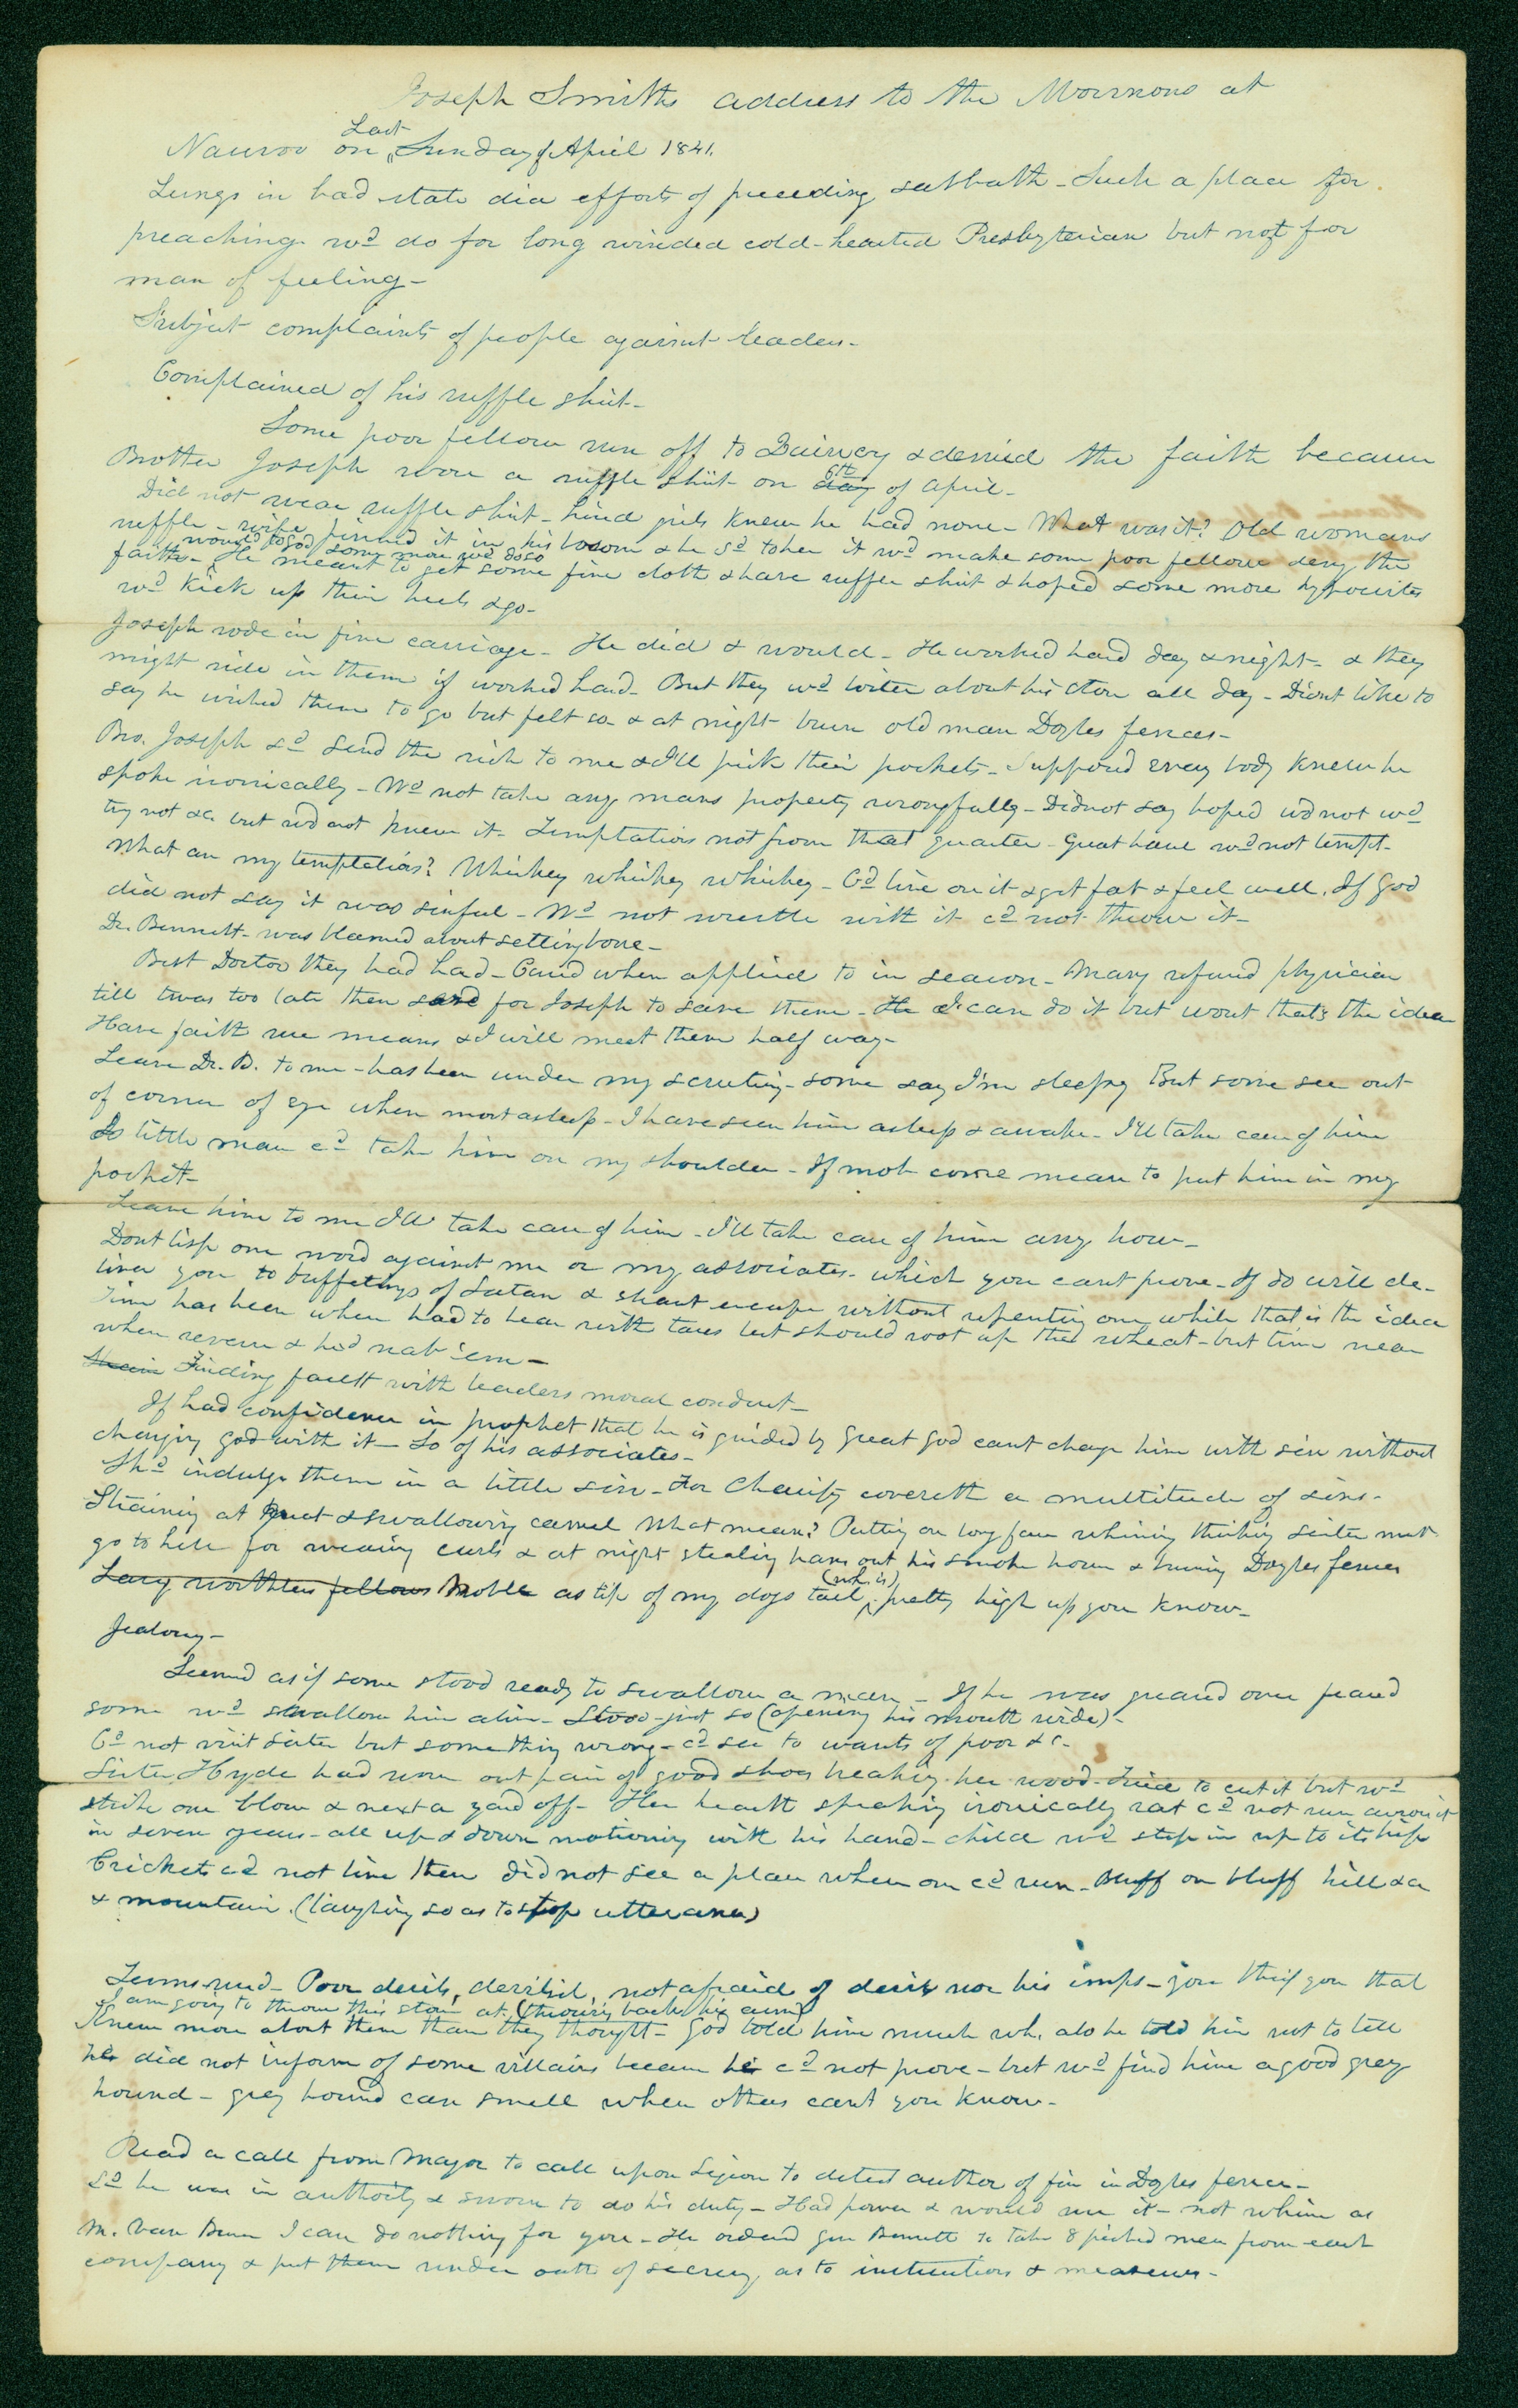 Joseph Smiths address to the Mormons at
Nauvoo on Last Sunday of April 1841.
Lungs in bad state dia efforts of preceeding sabbath - Such a place for
preaching wd do for long winded cold-hearted Presbyterian but not for
man of feeling -
Subject complaints of people against leaders -
Complained of his ruffle shirt -
Some poor fellow run off to Quincy & denied the faith because
Brother Joseph wore a ruffle shirt on day 6th of April -
Did not wear ruffle shirt - hired girls knew he had none - What was it? Old womans
ruffle - wife pinned it in his bosom & he sd to her it wd make some poor fellow deny the
faith - would to God some more wd do so He meant to get some fine cloth & have ruffle shirt & hoped some more hypocrites
wd kick up their heels & go -
Joseph rode in fine carriage - He did & would - He worked hard day & night - & they
might ride in them if worked hard - But they wd loiter about his store all day - Didnt like to
say he wished them to go but felt so & at night burn old man Doyles fences -
Bro. Joseph sd send the rich to me & I'll pick their pockets - Supposed every body knew he
spoke ironically - Wd not take any mans property wrongfully - Did not say hoped wd not wd
try not &c but wd not knew it - Temptations not from that quarter - Great have wd not tempt -
What are my temptations? Whiskey whiskey whiskey - Cd live on it & get fat & feel well. If God
did not say it was sinful - Wd not wrestle with it cd not throw it -
Dr. Bennett - was blamed about setting bone -
Best Doctor they had had - Cured when applied to in season - Many refused physician
till twas too late then send for Joseph to save them - He I can do it but wont that's the idea
Have faith use means & I will meet them half way -
Leave Dr. B. to me - has been under my scrutiny - some say I'm sleepy But some see out
of corner of eye when most asleep - I have seen him asleep & awake - I'll take care of him
So little man cd take him on my shoulder - If mob come mean to put him in my
pocket -
Leave him to me I'll take care of him - I'll take care of him any how -
Dont lisp one word against me or my associates - which you cant prove - If do will de-
liver you to buffetings of Satan & shant escape without repenting one while that is the idea
Time has been when had to bear with tares lest should root up the wheat - but time near
when reverse & he'd nab 'em -
Finding fault with leaders moral conduct -
If had confidence in prophet that he is guided by great God cant charge him with sin without
charging God with it - So of his associates -
Shd indulge them in a little sin - For Charity covereth a multitude of sins -
Straining at gnat & swallowing camel What mean? Putting on long face whining thinking sister must
go to hell for wearing curls & at night stealing hams out his smoke house & burning Doyles fences
Lazy worthless fellows Noble as tip of my dogs tail (wh. is) pretty high up you know -
Jealousy -
Seemed as if some stood ready to swallow a man - If he was greased over feared
some wd swallow him alive - Stood just so (opening his mouth wide) -
Cd not visit sister but something wrong - cd see to wants of poor &c -
Sister Hyde had worn out pair of good shoes breaking her wood - Tried to cut it but wd
strike one blow & next a yard off - Her hearth speaking ironically rat cd not run across it
in seven years - all up & down motioning with his hand - child wd step in up to its hip
Crickets cd not live there did not see a place where one cd run - Bluff on bluff hill &c
& mountain. (laughing so as to stop utterance)
Resumed - Poor devils, devilish, not afraid of devils nor his imps - you thief you that
I am going to throw this stone at (throwing back his arm)
Knew more about them than they thought - God told him much wh. also he told him not to tell
he did not inform of some villains because he cd not prove - but wd find him a good grey
hound - grey hound can smell when others cant you know -
Read a call from Mayor to call upon Legion to detect author of fire in Doyles fence -
Sd he was in authority & sworn to do his duty - Had power & would use it - not whine as
M. Van Buren I can do nothing for you - He ordered Gen Bennett to take 8 picked men from each
company & put them under oath of secrecy as to instructions & measures -